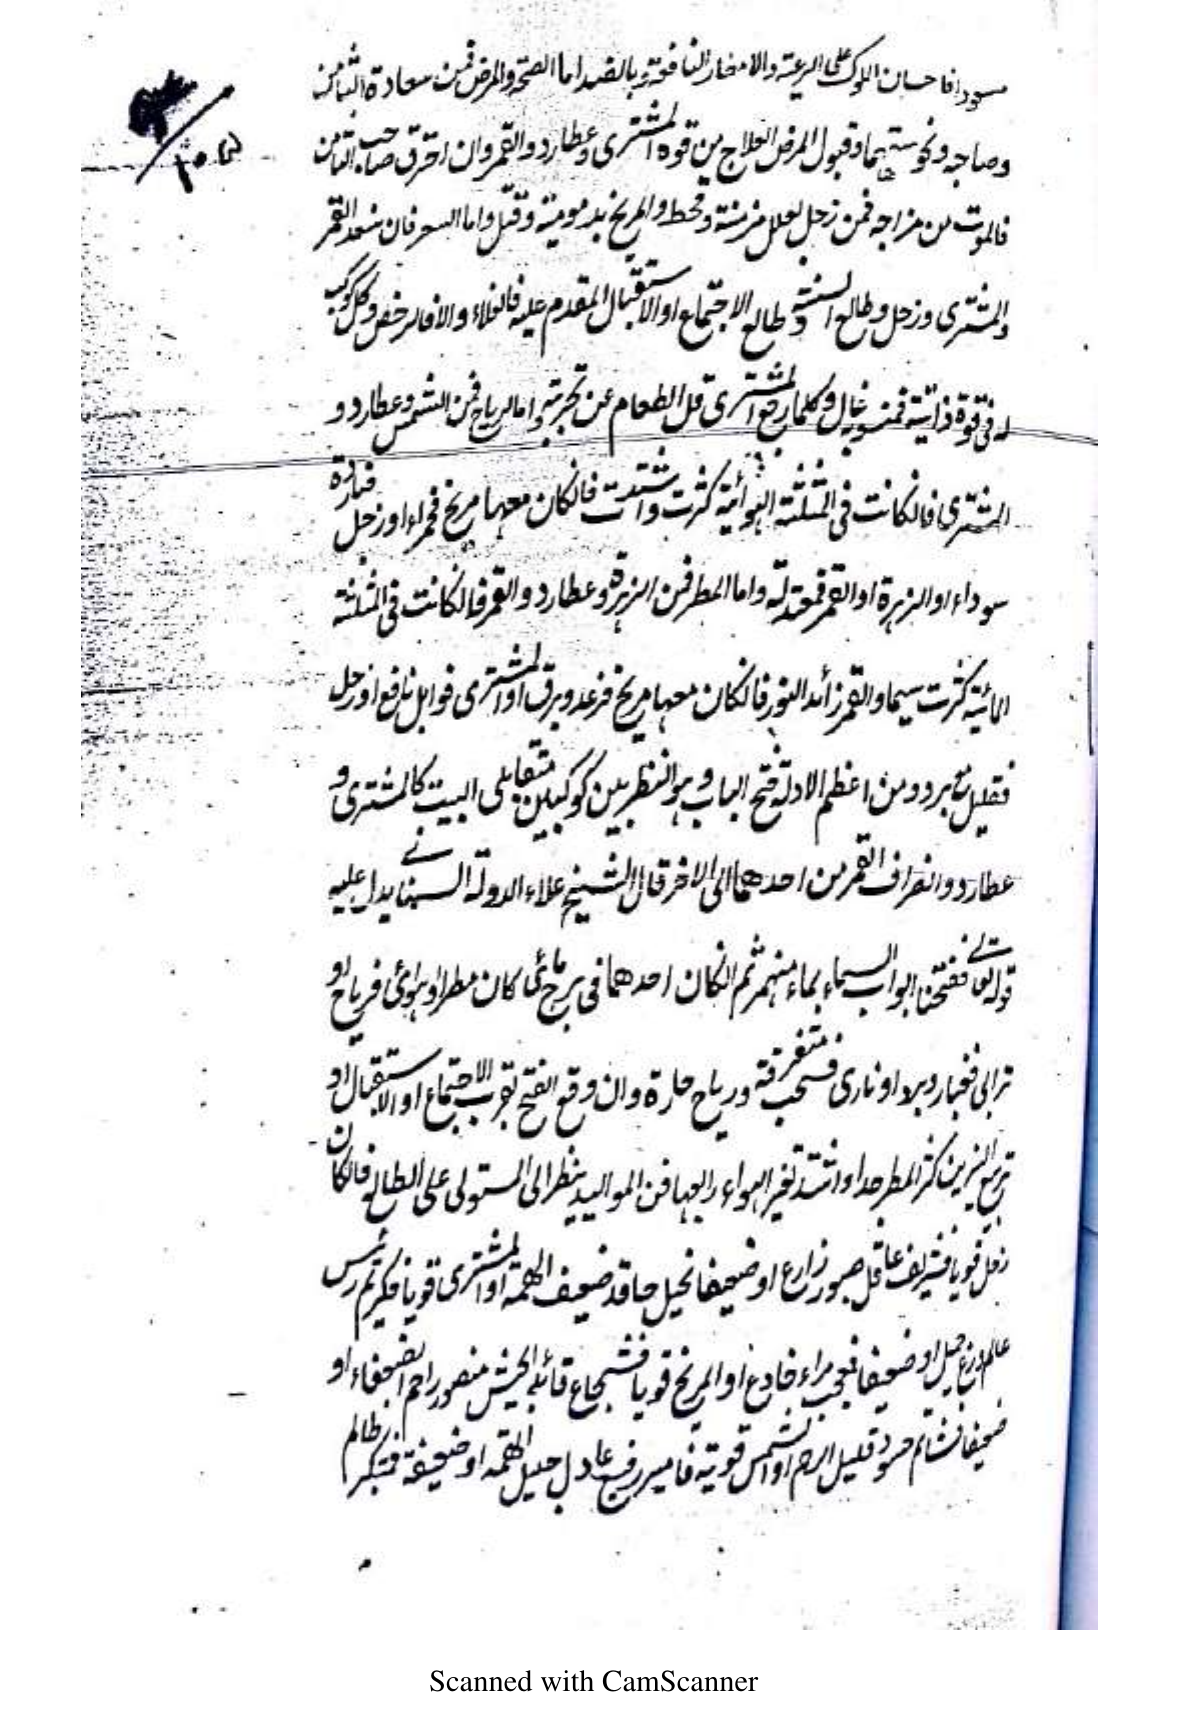 مسعودا فاحسان الملوك على الرعية والامطار النافعة وبالضد اما الصحة والمرض فمن سعادة الثامن
وصاحبه ونحوستهما وقبول المرض العلاج من قوة المشترى وعطارد والقمر وان احترق صاحب الثامن
فالموت من مزاجه فمن زحل بعلل مزمنة وقحط والمريخ بدموية وقتل واما السعر فان سعد القمر
والمشترى وزحل وطالع السنة وطالع الاجتماع او الاستقبال المقدم عليه فالغلاء والا فالرخص وكل كوكب
له فى قوة ذاتية فمنسوبه غال وكلما رفع المشترى قل الطعام عن تجربة واما الرياح فمن الشمس وعطارد و
المشترى فان كانت فى المثلثة الهوائية كثرت واشتدت فان كان معها مريخ فحمراء او زحل
سوداء او الزهرة او القمر فمعتدلة واما المطر فمن الزهرة وعطارد والقمر فان كانت فى المثلثة
المائية كثرت سيما والقمر زائد النور فان كان معها مريخ فرعد وبرق او المشترى فوابل نافع او زحل
فقليل مع برد ومن اعظم الادلة فتح الباب وهو النظر بين كوكبين متقابلى البيت كالمشترى و
عطارد وانصراف القمر من احدهما الى الاخر قال الشيخ علاء الدولة السمنانى يدل عليه
قوله تعالى ففتحنا ابواب السماء بماء منهمر ثم ان كان احدهما فى برج مائى كان مطر او هوائى فرياح او
ترابى فغبار وبرد او نارى فسحب متفرقة ورياح حارة وان وقع الفتح بقرب الاجتماع او الاستقبال او
تربيع النيرين كثر المطر جدا او اشتد تغير الهواء رابعها فن المواليد ينظر الى المستولى على الطالع فان كان
زحل قويا فشريف عاقل صبور زارع او ضعيفا بخيل حاقد ضعيف الهمة او المشترى قويا فكريم رئيس
عالم ورع جميل او ضعيفا فمعجب مراء خادع او المريخ قويا فشجاع قائد الجيش منصور راحم الضعفاء او
ضعيفا فشاتم حسود قليل الرحم او الشمس قوية فامير رفيع عادل جليل الهمة او ضعيفة فمتكبر ظالم
Scanned with CamScanner